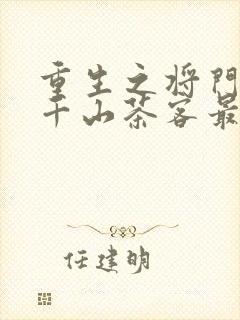 重生之将门
千山茶客最
任建明